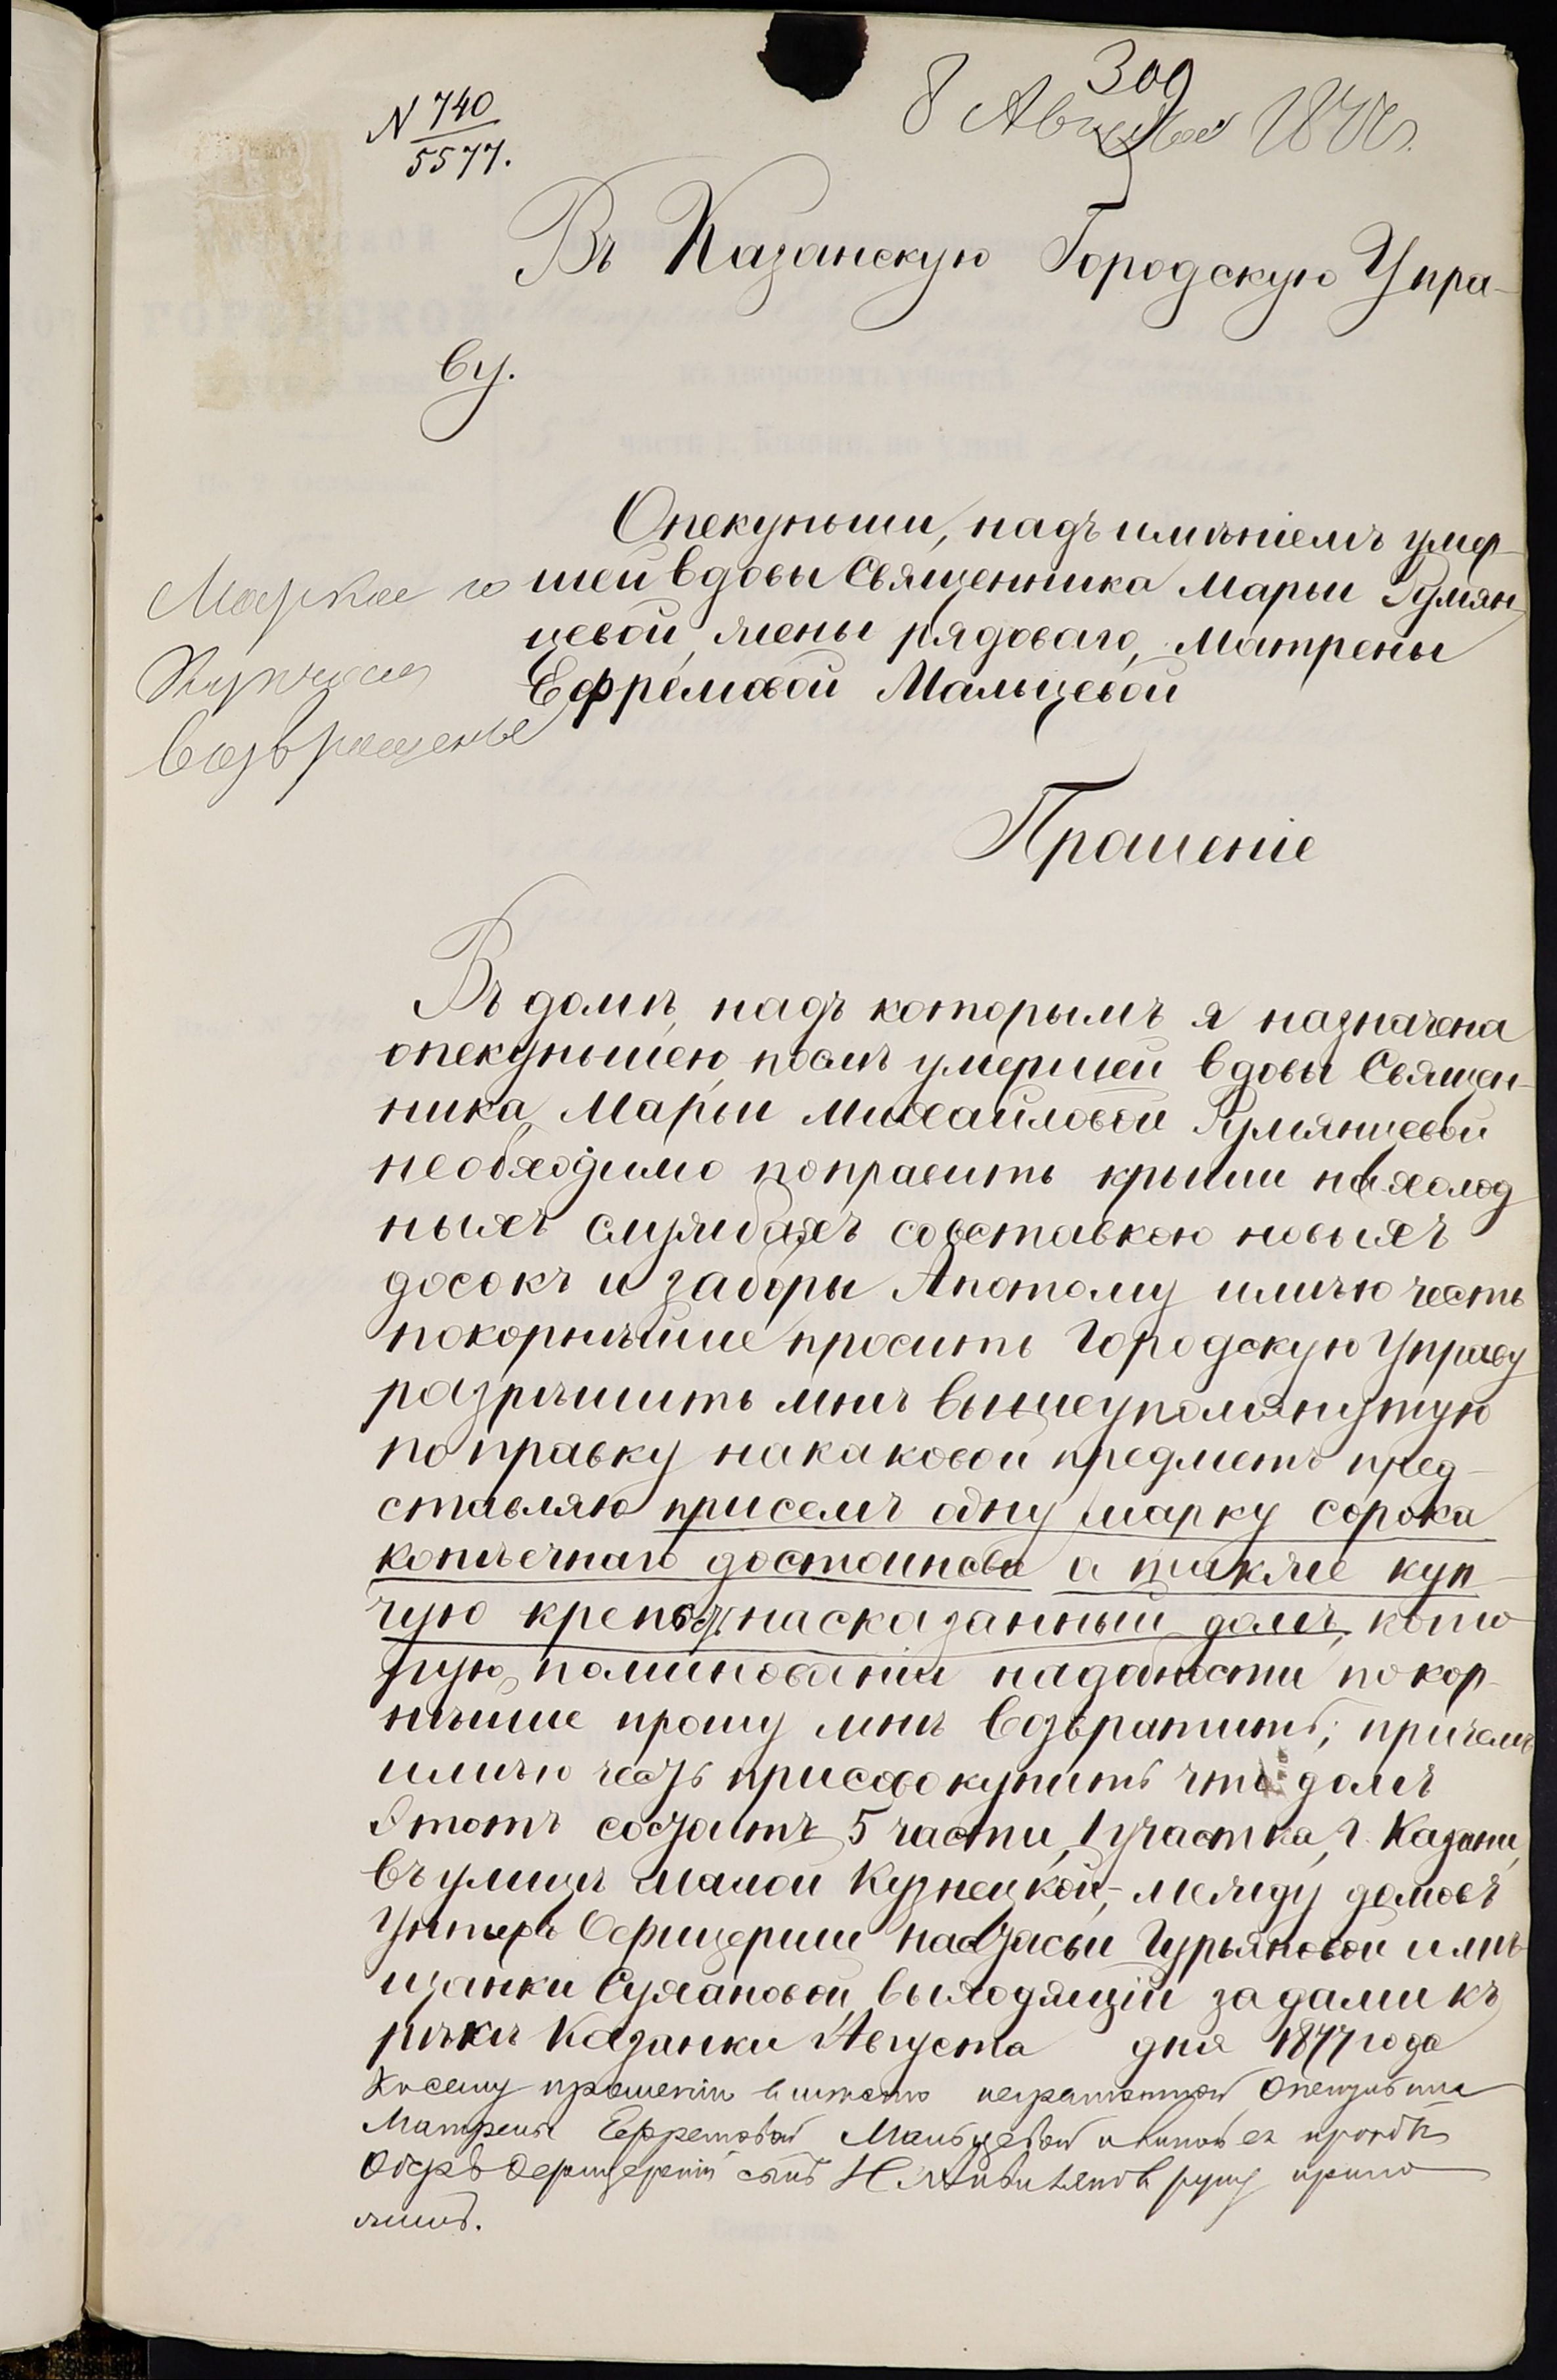 309
8 Августа 1877 г.
N 740
5577.
Въ Казанскую Городскую Упра-
ву.
Опекунши, надъ имѣніемъ умер-
шей вдовы Священника Марьи Румян-
цевой, жены рядоваго, Матрены
Ефремовой Мальцевой
Марка и
Купчая
возвращены
Прошеніе
Въ домѣ, надъ которымъ я назначена
опекуншею, послѣ умершей вдовы Священ-
ника, Марьи Михайловой Румянцевой
необходимо поправить крыши на холод
ныхъ службахъ совставкою новыхъ
досокъ и заборы Апотому имѣю честь
покорнѣйше просить Городскую Управу
разрѣшить мнѣ вышеупомянутую
поправку накаковой предметъ пред-
ставляю присемъ одну марку сорока
копѣечнаго достоинства а также куп-
чую крепость насказанный домъ, кото
рую, поминованіи надобности покор-
нѣйше прошу мнѣ возвратить; причемъ
имѣю честь присовокупить что домъ
этотъ состоитъ 5 части, 1 участка, г. Казани,
въ улицѣ Малой Кузнецкой, между домовъ
Унтеръ Офицерши Настасьи Гурьяновой и мѣ-
щанки Сухановой, выходящій задами къ
рѣкѣ Казанки Августа дня 1877 года
Къ сему прошенію вместо неграмотной Опекунши
Матрены Ефремовой Мальцевой по личной ея просьбѣ
Оберъ Офицерскій сынъ Н. руку прило
жилъ.